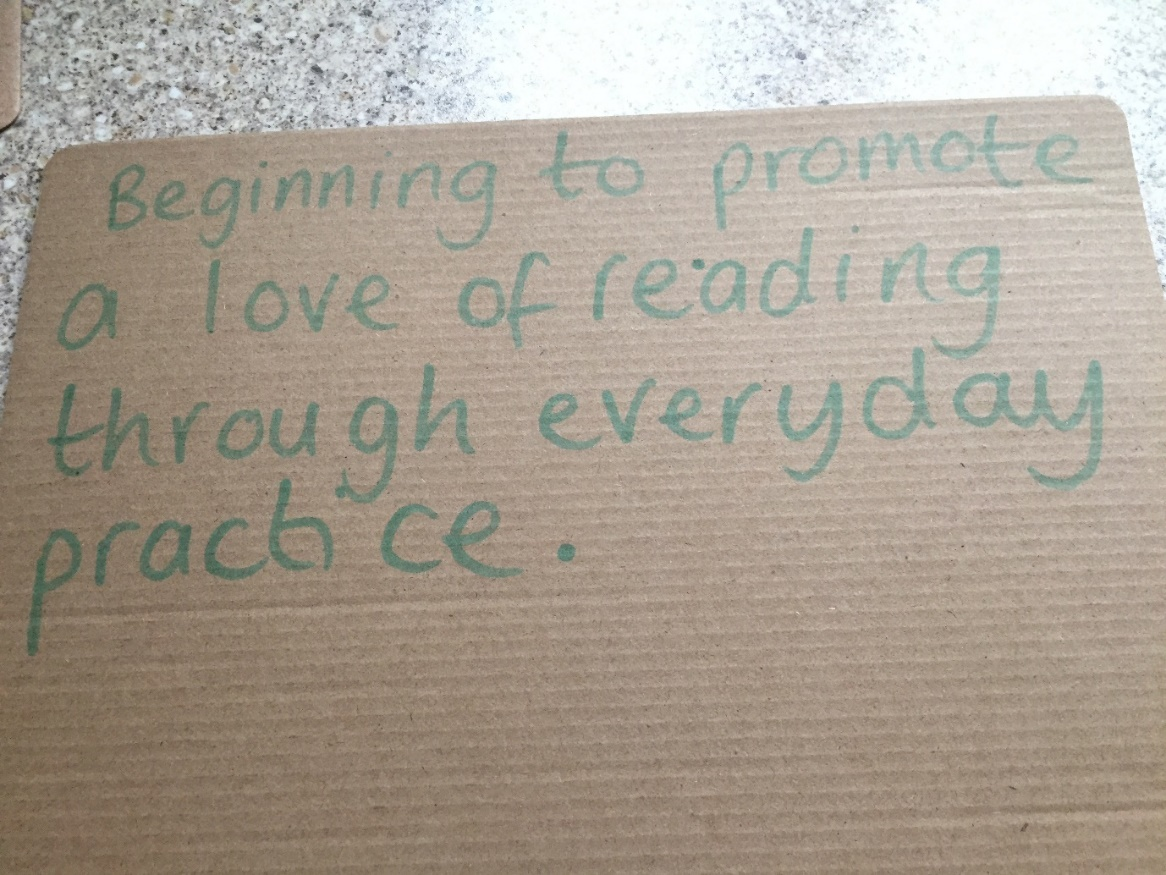 Beginning to promote
a love of reading
through everyday
practice.